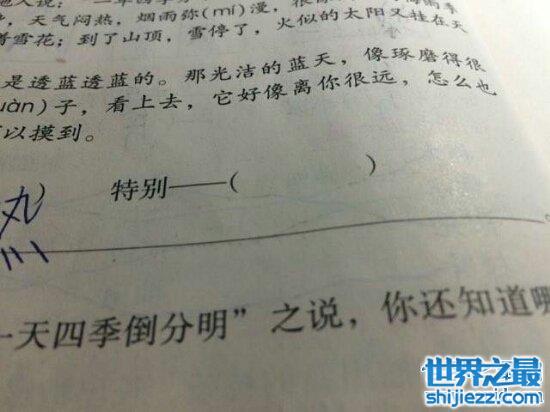 天气闷热，烟雨弥(mí)漫，
着雪花；到了山顶，雪停了，火似的太阳又挂在天
是透蓝透蓝的。那光洁的蓝天，像琢磨得很
uàn)子，看上去，它好像离你很远，怎么也
可以摸到。
特别——(      )
一天四季倒分明”之说，你还知道哪
世界之最
shijiezz.com